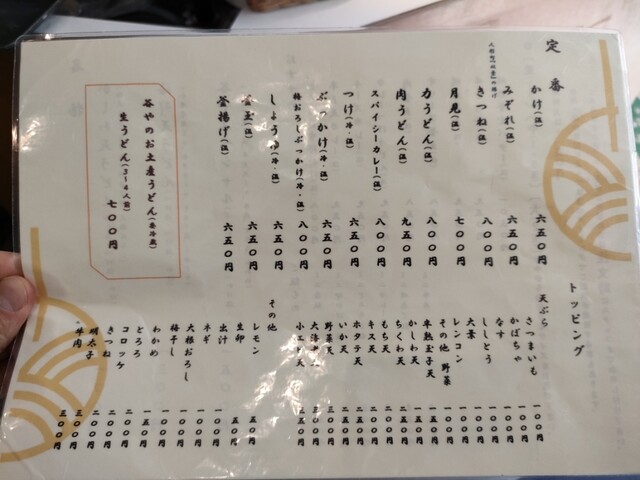 定番
かけ(温) 六五〇円
みぞれ(温) 六五〇円
人形町「双葉」の揚げ
きつね(温) 八〇〇円
月見(温) 七〇〇円
力うどん(温) 八〇〇円
肉うどん(温) 九五〇円
スパイシーカレー(温) 八〇〇円
つけ(冷・温) 六五〇円
ぶっかけ(冷・温) 六五〇円
梅おろしぶっかけ(冷・温) 八〇〇円
しょうゆ(冷・温) 六五〇円
釜玉(温) 六五〇円
釜揚げ(温) 六五〇円
谷やのお土産うどん(要冷蔵)
生うどん(3~4人前)
七〇〇円
トッピング
天ぷら
さつまいも 一〇〇円
かぼちゃ 一〇〇円
なす 一〇〇円
ししとう 一〇〇円
大葉 一〇〇円
レンコン 一〇〇円
その他 野菜 一〇〇円
半熟玉子天 一五〇円
かしわ天 二五〇円
ちくわ天 一五〇円
もち天 二〇〇円
キス天 二〇〇円
ホタテ天 二五〇円
いか天 二五〇円
野菜天 三〇〇円
大海老天 三〇〇円
小エビ天 二五〇円
その他
レモン 五〇円
生卵 五〇円
出汁 一〇〇円
ネギ 一〇〇円
大根おろし 一〇〇円
梅干し 一〇〇円
わかめ 一〇〇円
とろろ 一五〇円
コロッケ 二〇〇円
きつね 二〇〇円
明太子 三〇〇円
牛肉 三〇〇円